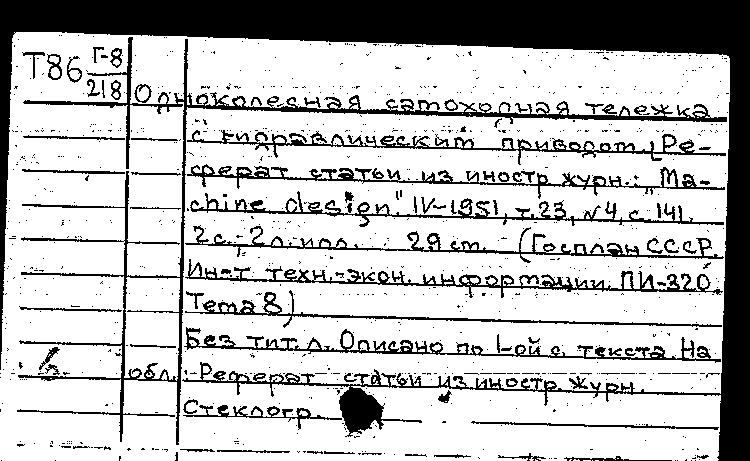 Т86 Г-8/218
Одноколесная самоходная тележка
с гидравлическим приводом. [Ре-
ферат статьи из иностр. журн.: „Ma-
chine design." IV-1951, т.23, №4, с. 141.
2 с., 2 л. илл. 29 см. (Госплан СССР.
Ин-т техн.-экон. информации. ПИ-320.
Тема 8)
Без тит. л. Описано по 1-ой с. текста. На
обл.: Реферат статьи из иностр. журн.
Стеклогр.